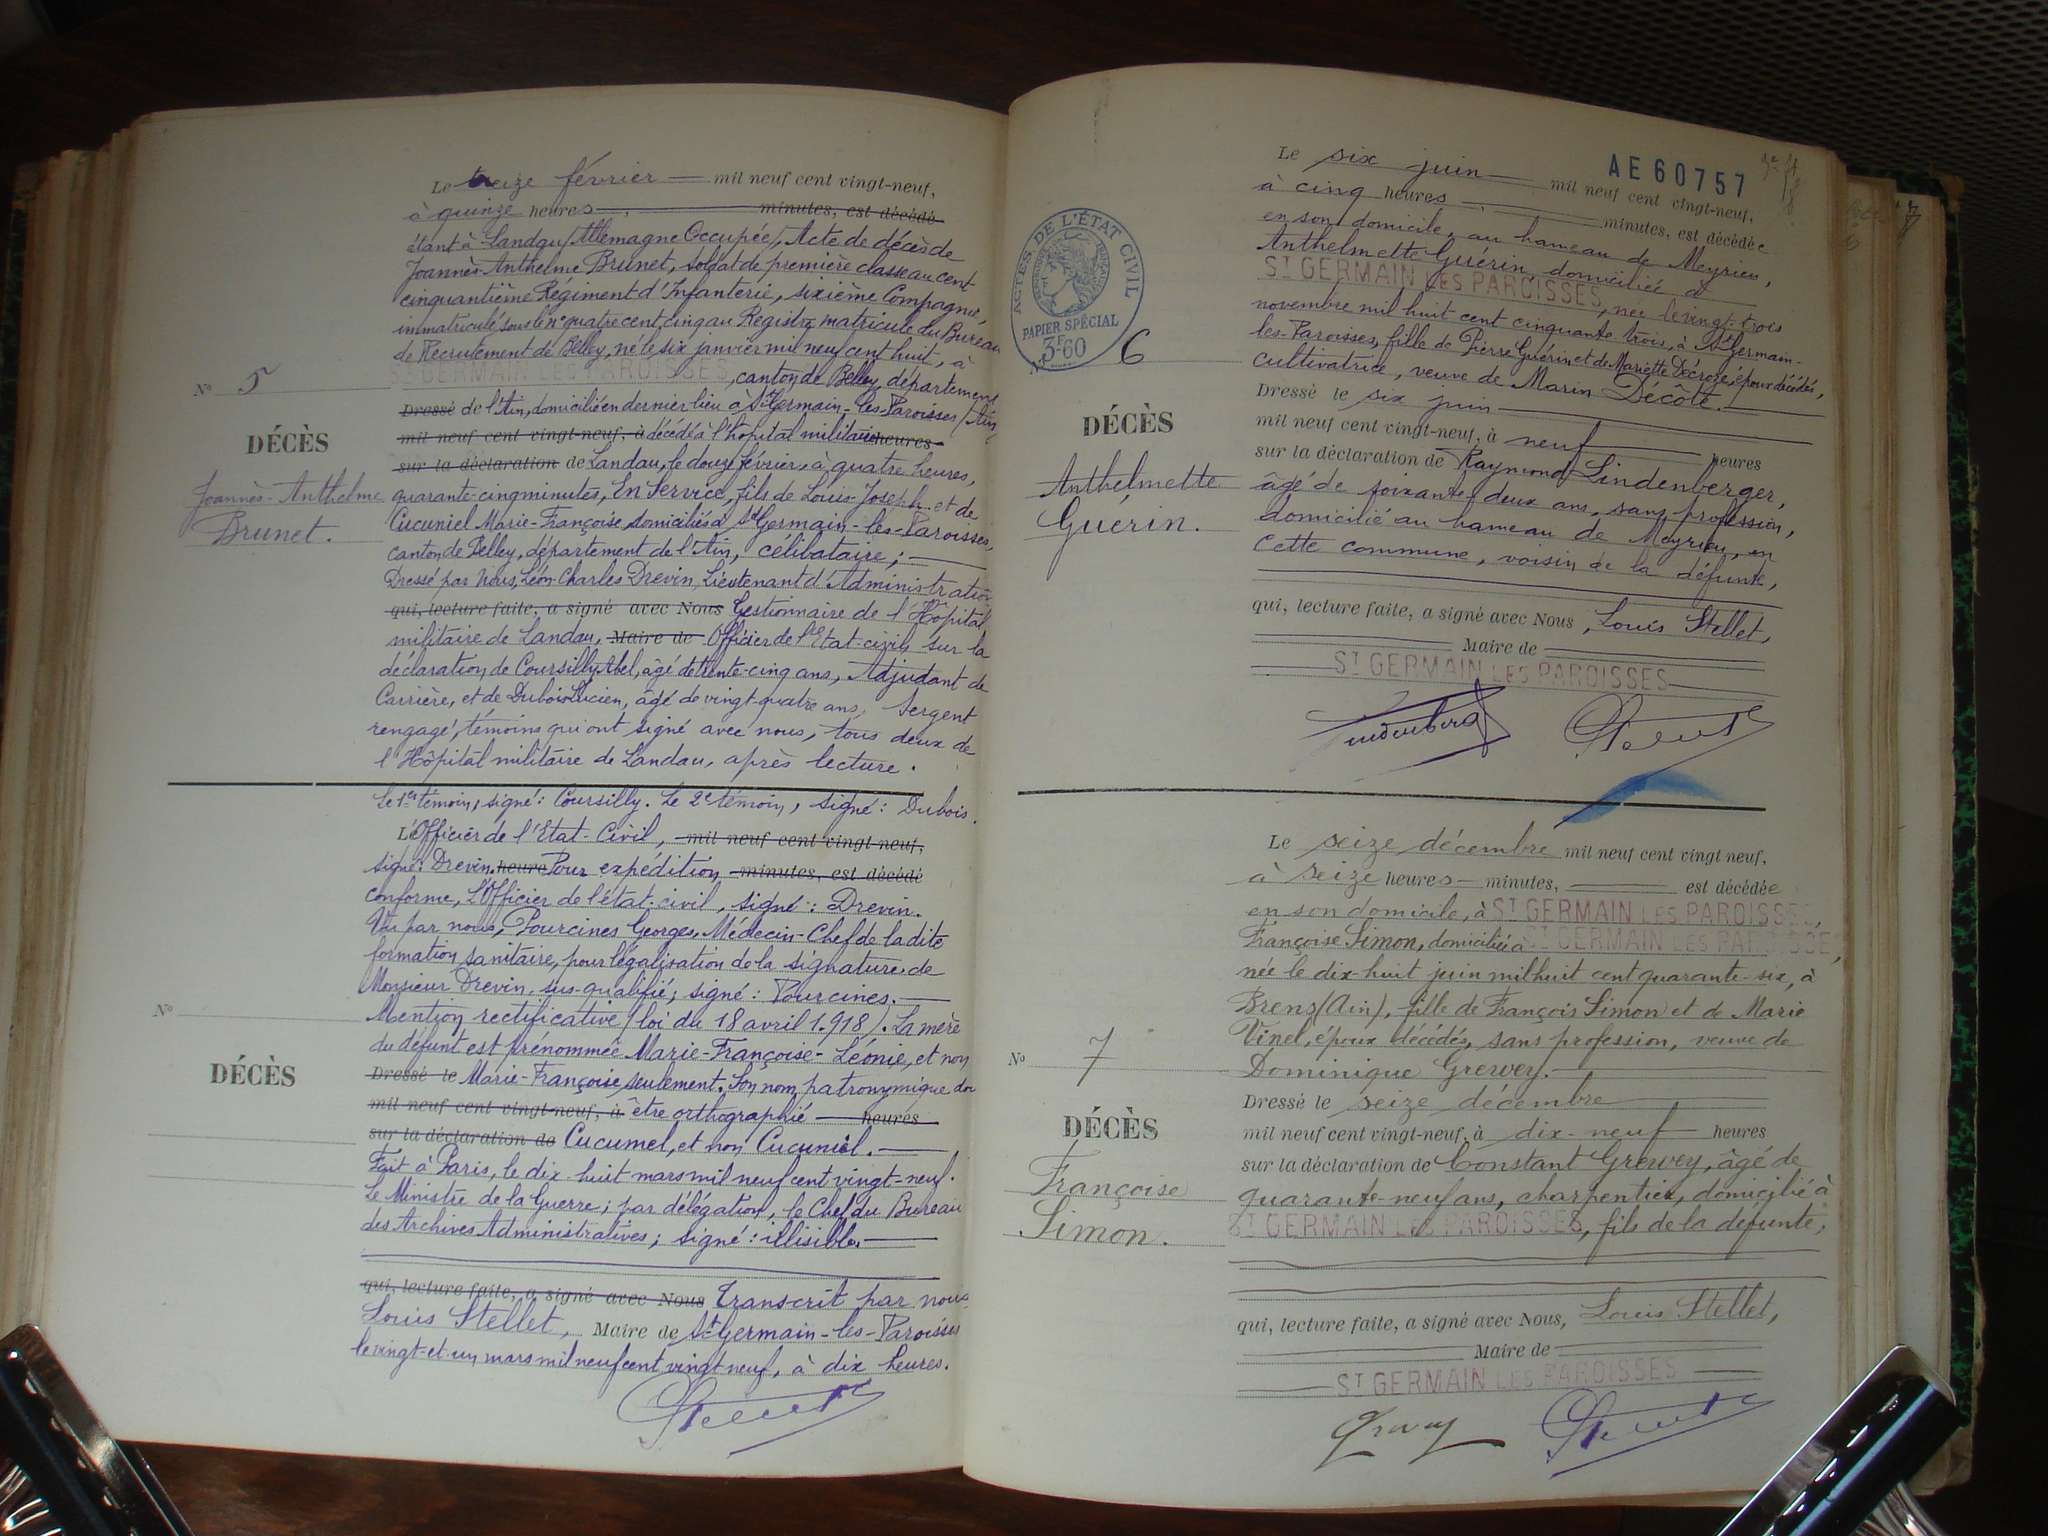 Le treize février — mil neuf cent vingt-neuf,
à quinze heures — minutes, est décédé
étant à Landau (Allemagne Occupée), Acte de décès de
Joannès-Anthelme Brunet, soldat de première classe au cent
cinquantième Régiment d'Infanterie, sixième Compagnie,
immatriculé sous le n° quatre cent cinq au Registre matricule du Bureau
de Recrutement de Belley, né le six janvier mil neuf cent huit, à
N° 5
ST GERMAIN LES PAROISSES, canton de Belley, département
Dressé de l'Ain, domicilié en dernier lieu à St Germain-les-Paroisses (Ain)
mil neuf cent vingt-neuf, à décédé à l'hôpital militaire heures
DÉCÈS
sur la déclaration de de Landau, le douze février à quatre heures,
Joannès-Anthelme
quarante-cinq minutes, En Service, fils de Louis-Joseph et de
Brunet.
Cucuniel Marie-Françoise, domiciliés à St Germain-les-Paroisses,
canton de Belley, département de l'Ain, célibataire; —
Dressé par Nous, Léon Charles Drevin, Lieutenant d'Administration
qui, lecture faite, a signé avec Nous Gestionnaire de l'Hôpital
militaire de Landau, Maire de Officier de l'Etat-civil, sur la
déclaration de Coursilly Abel, âgé de trente-cinq ans, Adjudant de
Carrière, et de Dubois Lucien, âgé de vingt-quatre ans, Sergent
rengagé, témoins qui ont signé avec nous, tous deux de
l'Hôpital militaire de Landau, après lecture.
Le 1er témoin, signé: Coursilly. Le 2e témoin, signé: Dubois.
L'Officier de l'Etat-Civil, mil neuf cent vingt-neuf,
signé: Drevin. heure Pour expédition minutes, est décédé
conforme, L'Officier de l'état-civil, signé: Drevin.
Vu par nous, Pourcines Georges, Médecin-Chef de la dite
formation sanitaire, pour légalisation de la signature de
Monsieur Drevin, sus-qualifié; signé: Pourcines. —
N°
Mention rectificative (loi du 18 avril 1.918). La mère
du défunt est prénommée Marie-Françoise-Léonie, et non
DÉCÈS
Dressé le Marie-Françoise, seulement. Son nom patronymique doit
mil neuf cent vingt-neuf, à être orthographié — heures
sur la déclaration de Cucumel, et non Cucuniel. —
Fait à Paris, le dix-huit mars mil neuf cent vingt-neuf.
Le Ministre de la Guerre; par délégation, le Chef du Bureau
des Archives Administratives; signé: illisible. —
qui, lecture faite, a signé avec Nous Transcrit par nous
Louis Stellet, Maire de St Germain-les-Paroisses
le vingt-et-un mars mil neuf cent vingt neuf, à dix heures.
AE 60757
Le six juin — mil neuf cent vingt-neuf,
à cinq heures — minutes, est décédée
en son domicile, au hameau de Meyrieu,
Anthelmette Guérin, domiciliée à
ST GERMAIN LES PAROISSES, née le vingt-trois
novembre mil huit cent cinquante-trois, à St Germain-
les-Paroisses, fille de Pierre Guérin et de Mariette Décroze, époux décédés,
cultivatrice, veuve de Marin Décôte. —
ACTES DE L'ÉTAT CIVIL
PAPIER SPÉCIAL
3F60
N° 6
DÉCÈS
Anthelmette
Guérin.
Dressé le six juin —
mil neuf cent vingt-neuf, à neuf — heures
sur la déclaration de Raymond Lindenberger,
âgé de soixante deux ans, sans profession,
domicilié au hameau de Meyrieu, en
cette commune, voisin de la défunte,
qui, lecture faite, a signé avec Nous, Louis Stellet,
Maire de
ST GERMAIN LES PAROISSES
Le seize décembre mil neuf cent vingt neuf,
à seize heures — minutes, — est décédée
en son domicile, à ST GERMAIN LES PAROISSES,
Françoise Simon, domiciliée à ST GERMAIN LES PAROISSES,
née le dix-huit juin mil huit cent quarante-six, à
Brens (Ain), fille de François Simon et de Marie
Vinel, époux décédés, sans profession, veuve de
Dominique Grewey. —
N° 7
DÉCÈS
Françoise
Simon.
Dressé le seize décembre —
mil neuf cent vingt-neuf, à dix-neuf — heures
sur la déclaration de Constant Grewey, âgé de
quarante-neuf ans, charpentier, domicilié à
ST GERMAIN LES PAROISSES, fils de la défunte,
qui, lecture faite, a signé avec Nous, Louis Stellet,
Maire de
ST GERMAIN LES PAROISSES